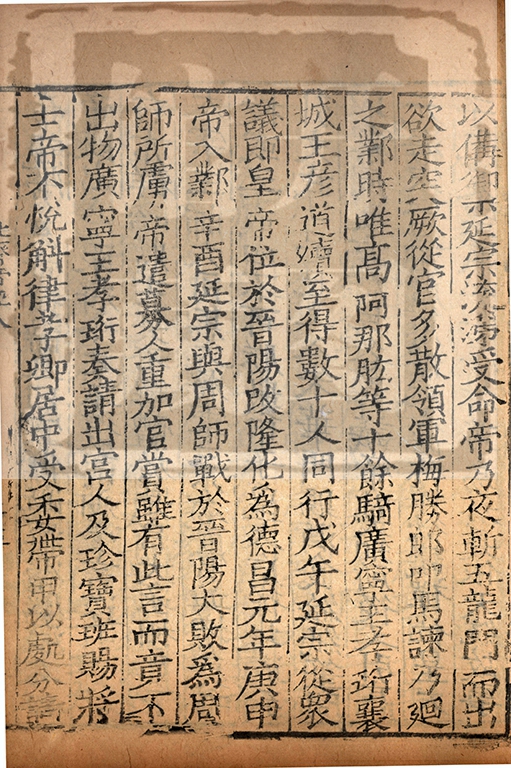 以備御延宗流涕受命帝乃夜斬五龍門而出
欲走突厥從官多散領軍梅勝郎叩馬諫乃廻
之鄴時唯高阿那肱等十餘騎廣寧王孝珩襄
城王彦道續至得數十人同行戊午延宗從衆
議即皇帝位於晉陽改隆化爲德昌元年庚申
帝入鄴辛酉延宗與周師戰於晉陽大敗爲周
師所虜帝遣募人重加官賞雖有此言而竟不
出物廣寧王孝珩奏請出宮人及珍寶班賜將
士帝不悅斛律孝卿居中受委帶甲以處分請